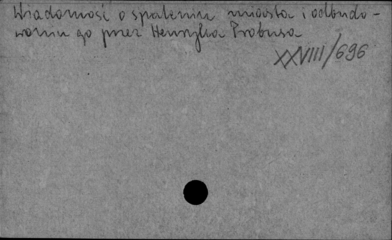 Wiadomość o spaleniu miasta i odbudo-
waniu go przez Henryka Probusa
XXVIII/696